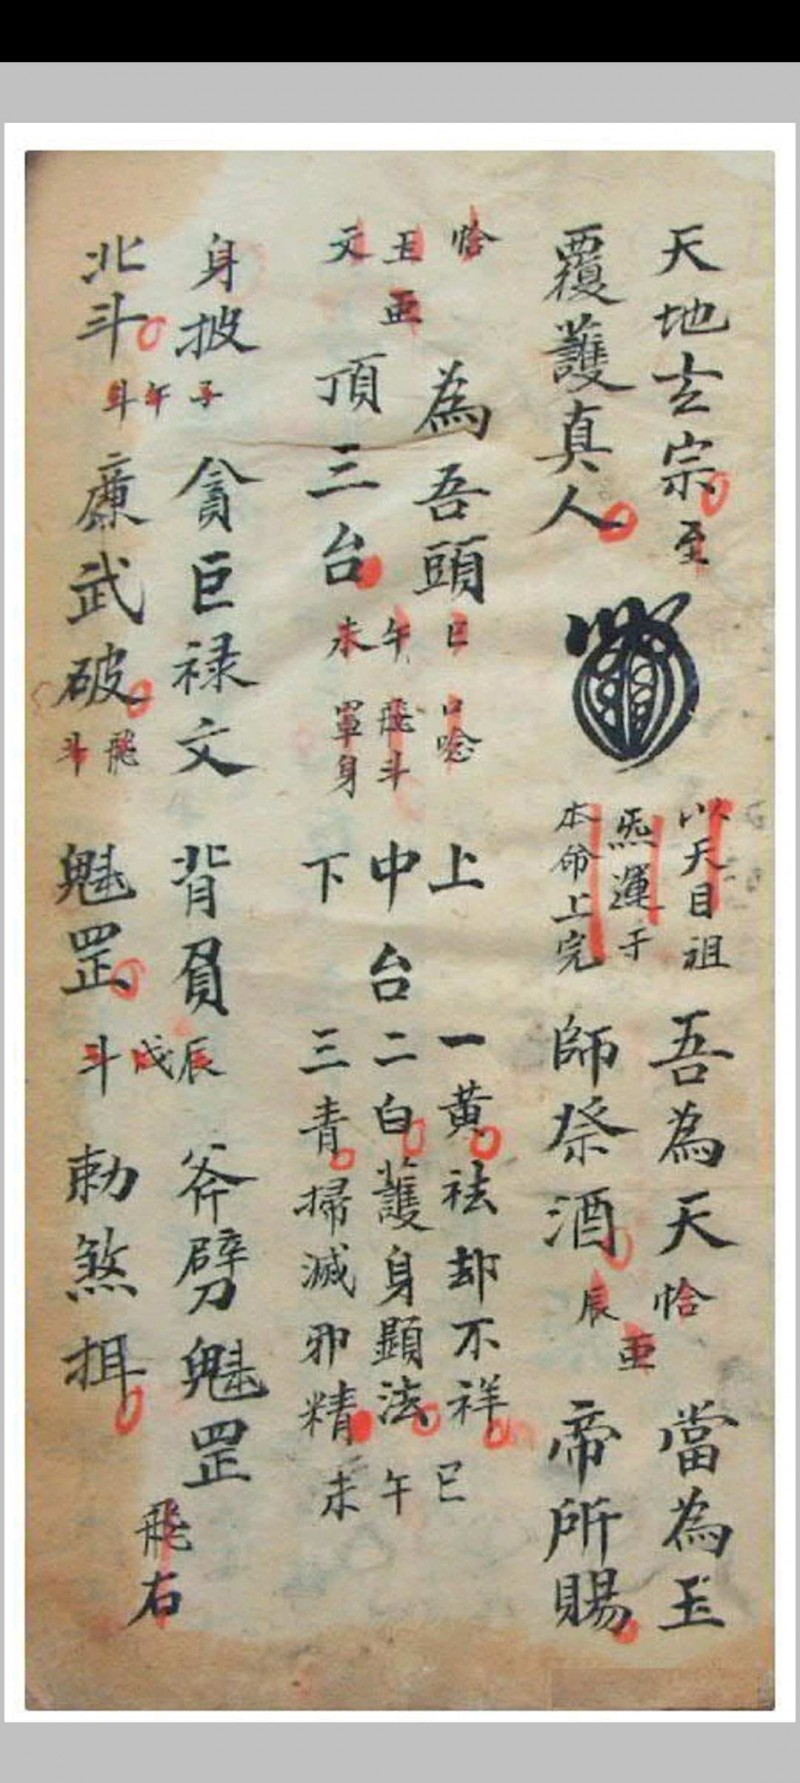 天地玄宗
覆護真人
至
以天目祖
炁運于
本命上完
吾為天
師祭酒
恰
亜
辰
當為玉
帝所賜
恰
玉亜
文
為吾頭
頂三台
巳
午
未
口唸
飛斗
罩身
上 一黃祛却不祥 巳
中台二白護身顯法 午
下 三青掃滅邪精 未
身披
北斗
子
午
斗
貪巨禄文
廉武破
飛
斗
背負
魁罡
辰
戌
斗
斧劈魁罡
勅煞
飛右